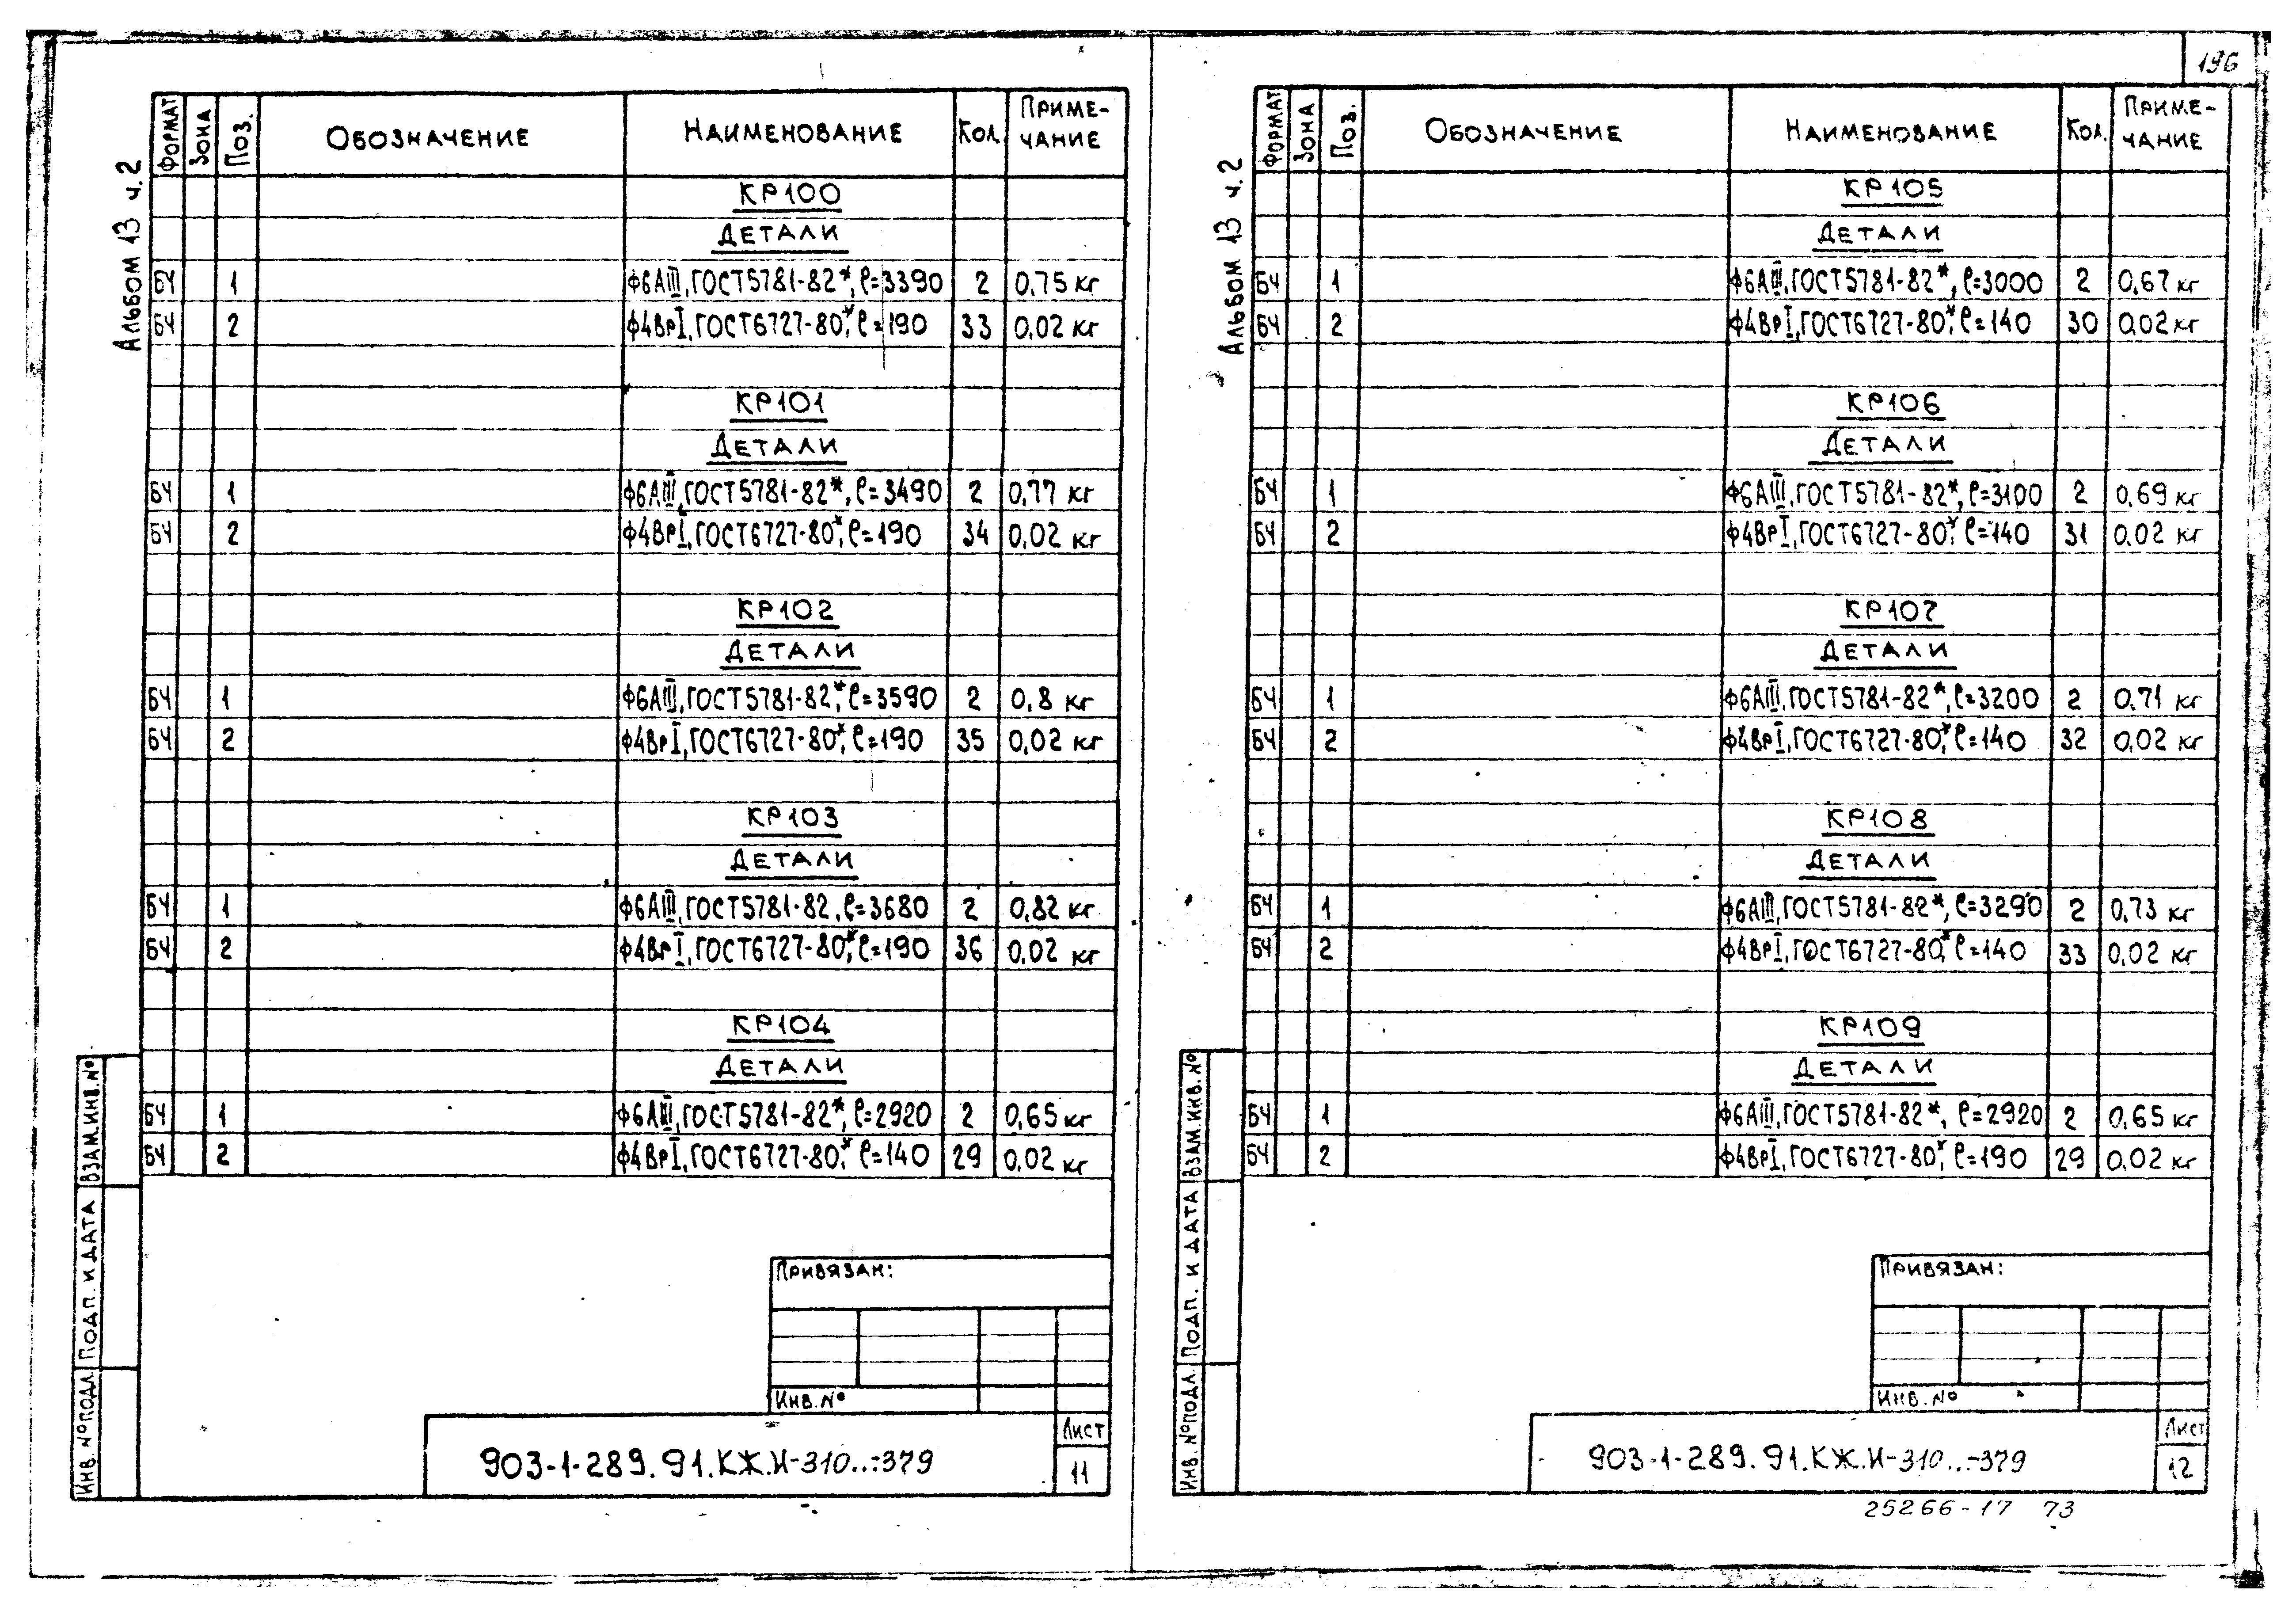 196
Альбом 13 ч.2
Формат Зона Поз. Обозначение Наименование Кол. Примечание
КР100
Детали
БЧ 1 ф6АIII, ГОСТ5781-82*, ℓ=3390 2 0,75 кг
БЧ 2 ф4ВрI, ГОСТ6727-80*, ℓ=190 33 0,02 кг
КР101
Детали
БЧ 1 ф6АIII, ГОСТ5781-82*, ℓ=3490 2 0,77 кг
БЧ 2 ф4ВрI, ГОСТ6727-80*, ℓ=190 34 0,02 кг
КР102
Детали
БЧ 1 ф6АIII, ГОСТ5781-82*, ℓ=3590 2 0,8 кг
БЧ 2 ф4ВрI, ГОСТ6727-80*, ℓ=190 35 0,02 кг
КР103
Детали
БЧ 1 ф6АIII, ГОСТ5781-82, ℓ=3680 2 0,82 кг
БЧ 2 ф4ВрI, ГОСТ6727-80*, ℓ=190 36 0,02 кг
КР104
Детали
БЧ 1 ф6АIII, ГОСТ5781-82*, ℓ=2920 2 0,65 кг
БЧ 2 ф4ВрI, ГОСТ6727-80*, ℓ=140 29 0,02 кг
Взам.инв.№
Подп. и дата
Инв.№подл.
Привязан:
Инв.№
903-1-289.91.КЖ.И-310..-379
Лист
11
Альбом 13 ч.2
Формат Зона Поз. Обозначение Наименование Кол. Примечание
КР105
Детали
БЧ 1 ф6АIII, ГОСТ5781-82*, ℓ=3000 2 0,67 кг
БЧ 2 ф4ВрI, ГОСТ6727-80*, ℓ=140 30 0,02 кг
КР106
Детали
БЧ 1 ф6АIII, ГОСТ5781-82*, ℓ=3100 2 0,69 кг
БЧ 2 ф4ВрI, ГОСТ6727-80*, ℓ=140 31 0.02 кг
КР107
Детали
БЧ 1 ф6АIII, ГОСТ5781-82*, ℓ=3200 2 0,71 кг
БЧ 2 ф4ВрI, ГОСТ6727-80*, ℓ=140 32 0,02 кг
КР108
Детали
БЧ 1 ф6АIII, ГОСТ5781-82*, ℓ=3290 2 0,73 кг
БЧ 2 ф4ВрI, ГОСТ6727-80*, ℓ=140 33 0,02 кг
КР109
Детали
БЧ 1 ф6АIII, ГОСТ5781-82*, ℓ=2920 2 0,65 кг
БЧ 2 ф4ВрI, ГОСТ6727-80*, ℓ=190 29 0,02 кг
Взам.инв.№
Подп. и дата
Инв.№подл.
Привязан:
Инв.№
903-1-289.91.КЖ.И-310..-379
Лист
12
25266-17 73